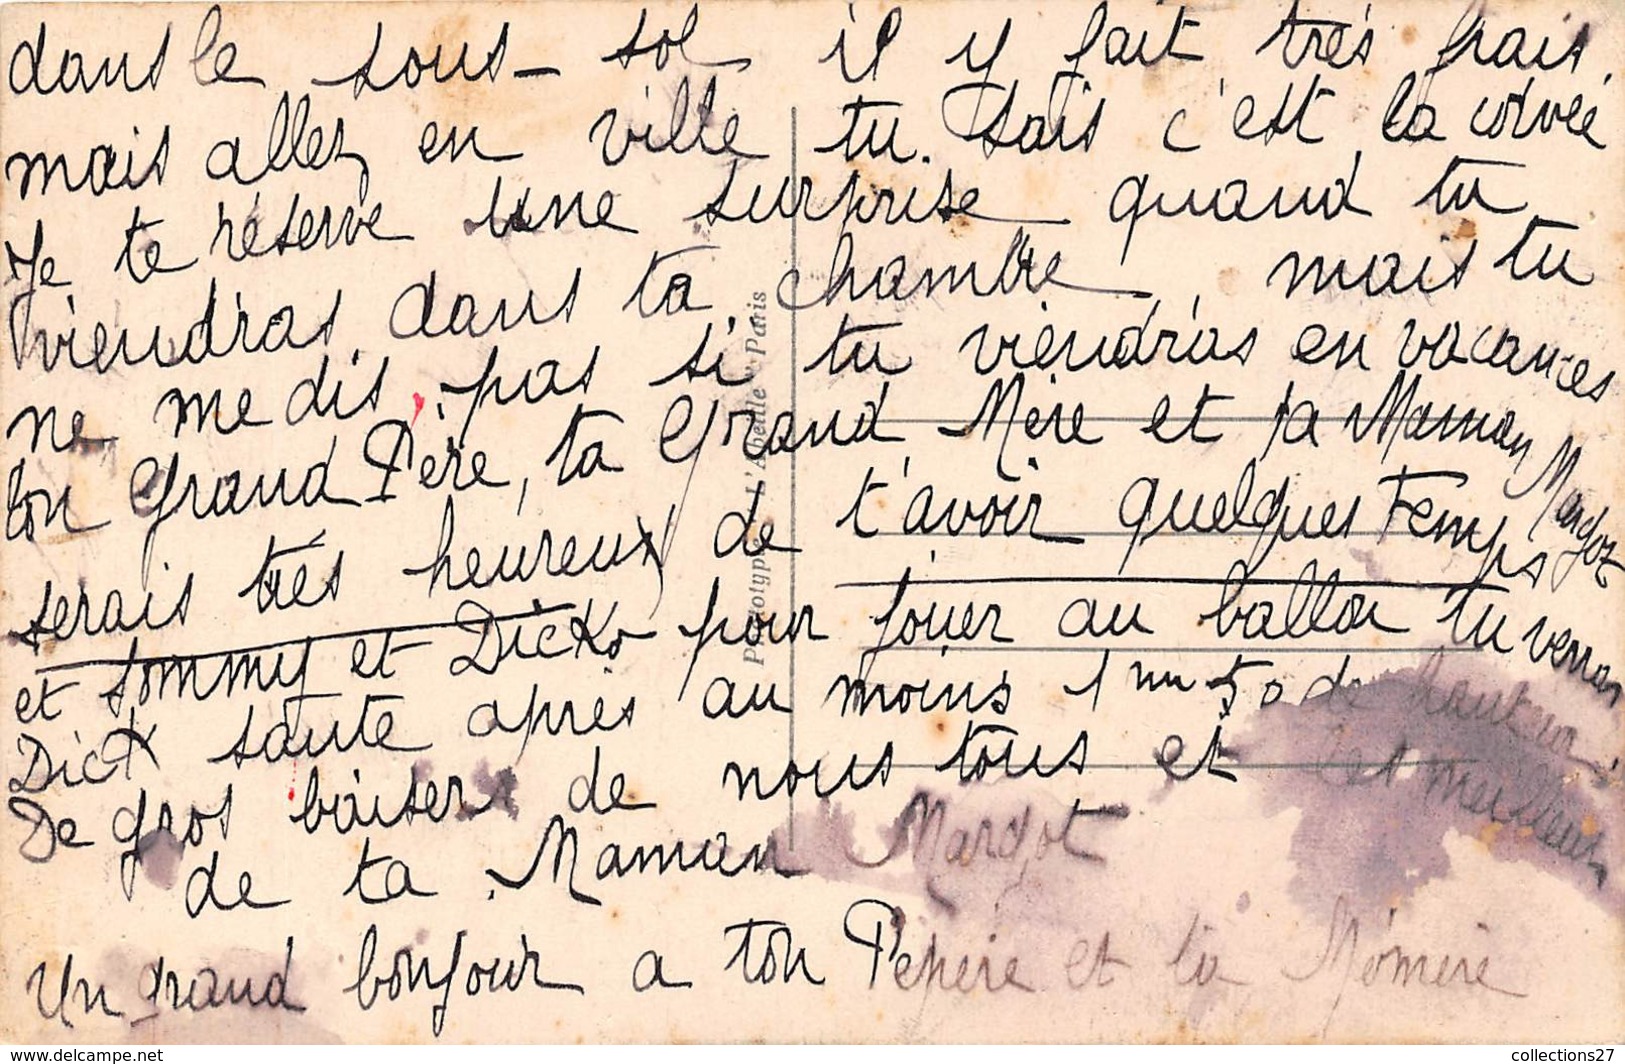 dans le sous-sol il y fait très frais.
mais allez en ville tu sais c'est la corvée
Je te réserve une surprise quand tu
viendras dans ta chambre, mais tu
ne me dis pas si tu viendras en vacances
ton Grand Père, ta Grand Mère et ta Maman Margot
serais très heureux de t'avoir quelques temps
et Tommy et Dick pour jouer au ballon tu verras
Dick saute après au moins 1 m 50 de hauteur
De gros baisers de nous tous et les meilleurs
de ta Maman Margot
Un grand bonjour a ton Pepère et ta Mémère
Phototypie "L'Abeille" Paris
www.delcampe.net
collections27